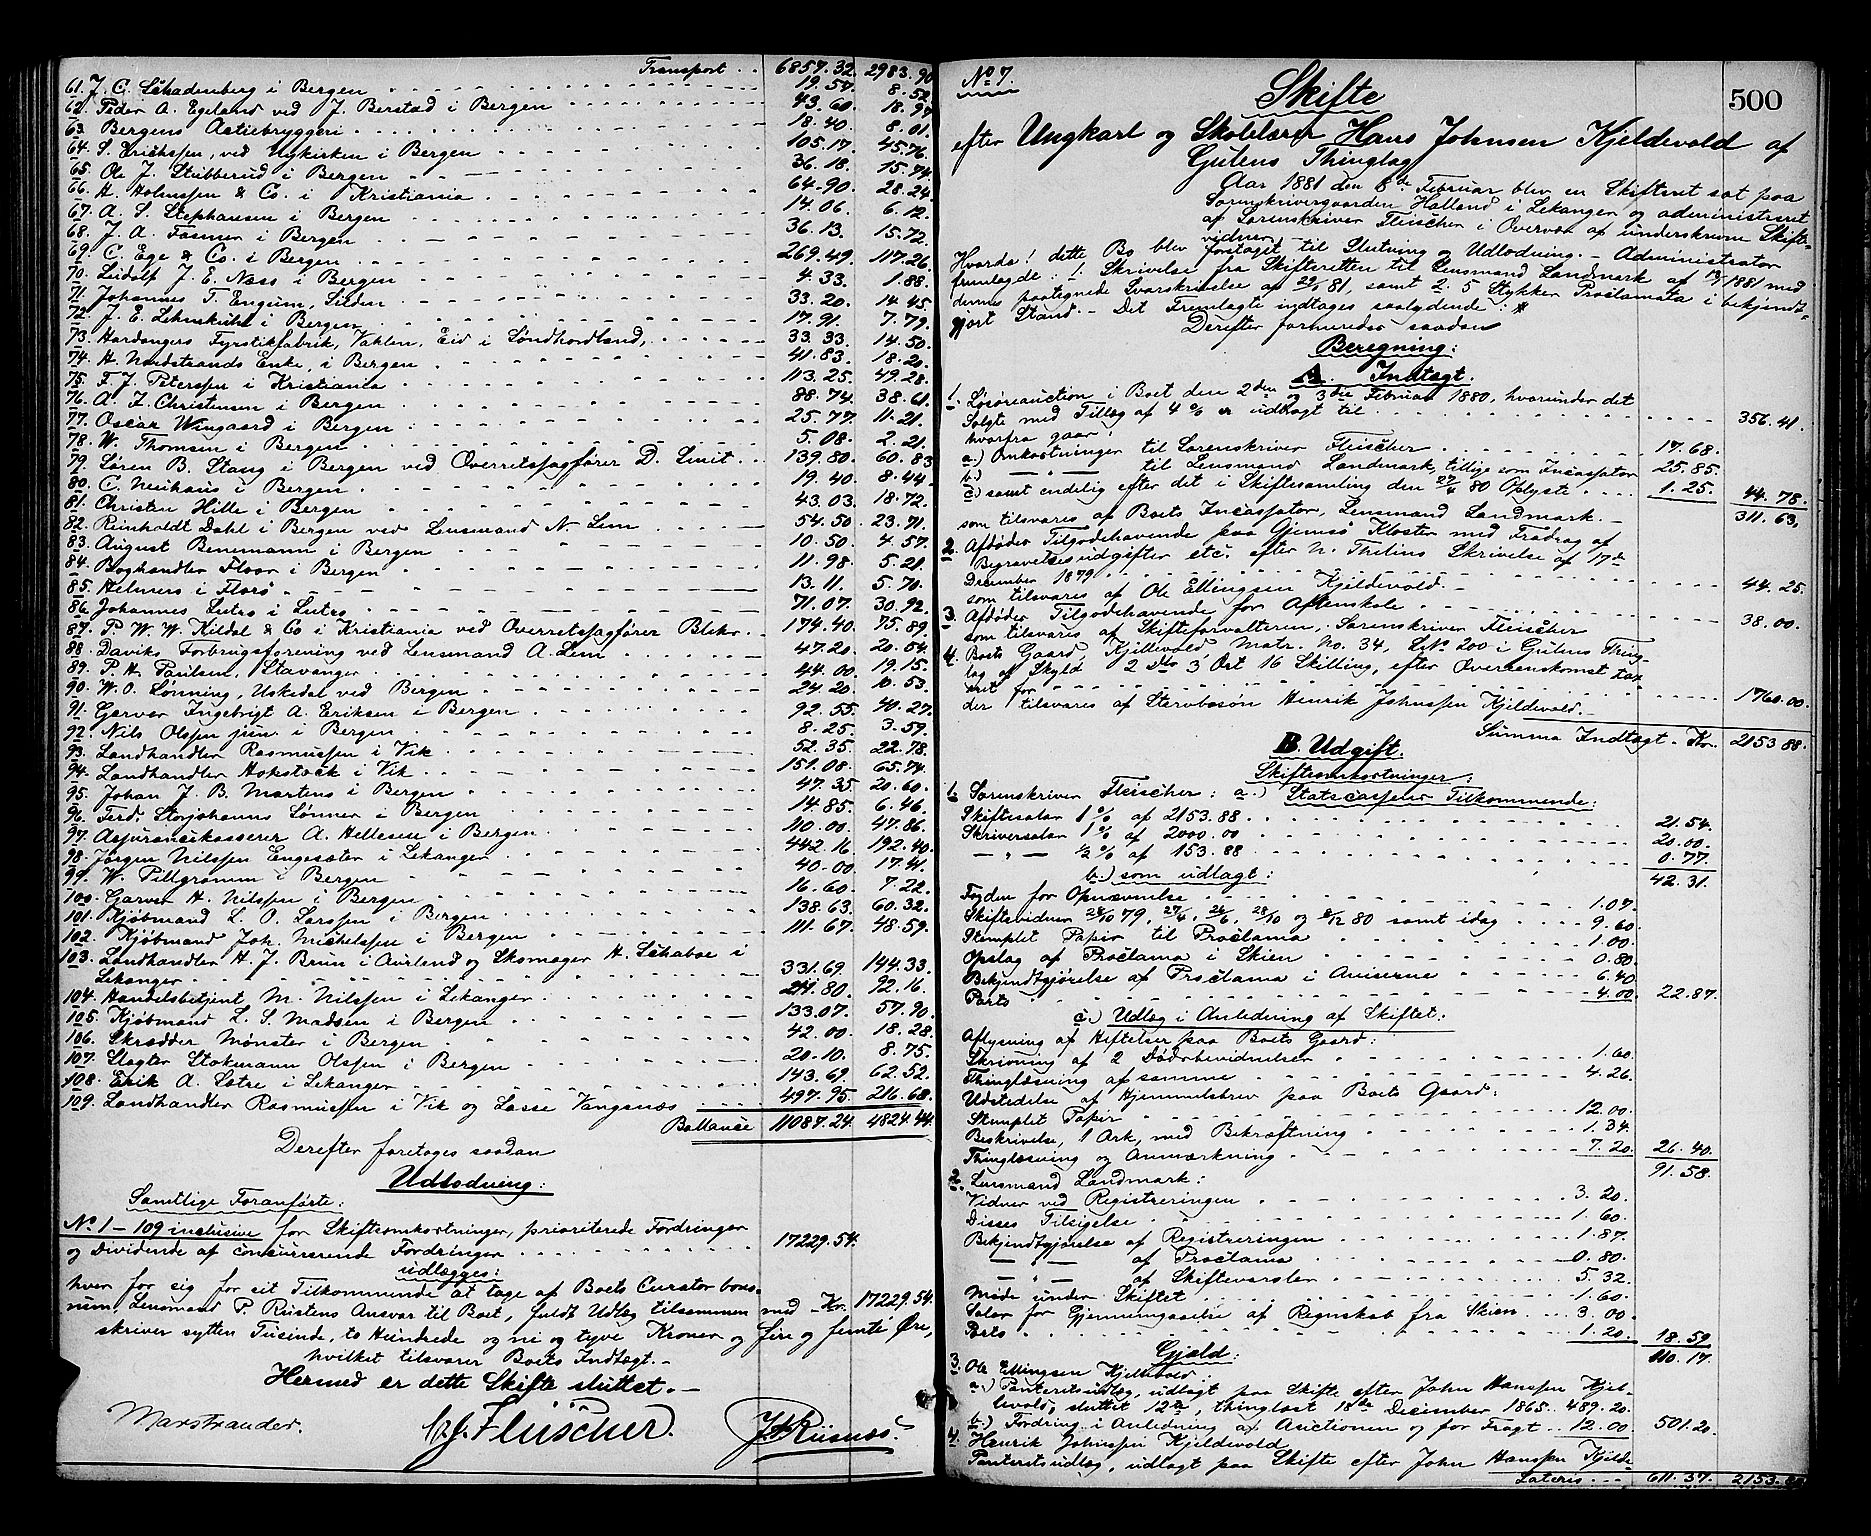 Transport . . 6857.32. 2983.90
61. J. C. Schadenberg i Bergen 19.57. 8.52
62. Peder A. Egeland ved J. Berstad i Bergen 43.60. 18.97
63. Bergens Actiebryggeri 18.40. 8.01.
64. S. Erichssen, ved Nykirken i Bergen 105.17. 45.76.
65. Ole J. Stubberud i Bergen 36.18. 15.74.
66. H. Holmssen & Co. i Kristiania 64.90. 28.24.
67. A. S. Stephansen i Bergen 14.06. 6.12.
68. J. A. Fasmer i Bergen 36.13. 15.72.
69. C. Ege & Co. i Bergen 269.49. 117.26.
70. Lidolf J. E. Næss i Bergen 4.33. 1.88.
71. Johannes T. Engum, 33.20. 14.45.
72. J. E. Lehmkuhl i Bergen 17.91. 7.79.
73. Hardangers Fyrstikfabrik, Vaklen, Eid i Søndhordland, 33.33. 14.50.
74. H. Nordstrands Enke, i Bergen 41.83. 18.20.
75. F. J. Peterssen i Kristiania 113.25. 49.28.
76. A. Z. Christensen i Bergen 88.74. 38.61.
77. Oscar Wingaard i Bergen 25.77. 11.21.
78. W. Thomsen i Bergen 5.08. 2.21.
79. Søren B. Stang i Bergen ved Overretssagfører D. Smit 139.80. 60.83
80. C. Neuhaus i Bergen 19.40. 8.44.
81. Christen Hille i Bergen 43.03. 18.72.
82. Reinholdt Dahl i Bergen ved Lensmand N. Lem 54.50. 23.71.
83. August Benemann i Bergen 10.50. 4.57.
84. Boghandler Floor i Bergen 11.98. 5.21.
85. Helmers i Florø 13.11. 5.70.
86. Johannes Lutro i Lutro 71.07. 30.92.
87. P. W. W. Kildal & Co i Kristiania ved Overretssagfører Blehr 174.40. 75.89.
88. Daviks Forbrugsforening ved Lensmand A. Lem 47.20. 20.54.
89. P. H. Paulsen, Stavanger 44.00. 19.15.
90. W. O. Lønning, Uskedal ved Bergen 24.20. 10.53.
91. Garver Ingebrigt A. Eriksen i Bergen 92.55. 40.27.
92. Nils Olssen jun. i Bergen 8.25. 3.59.
93. Landhandler Rasmussen i Vik 52.35. 22.78.
94. Landhandler Hokstock i Vik 151.08. 65.74.
95. Johan J. B. Martens i Bergen 47.35. 20.60.
96. Ferd. Storjohanns Sønner i Bergen 14.85. 6.46.
97. Assurancekasserer A. Hellesen i Bergen 110.00. 47.86.
98. Jørgen Nilssen Engesæter i Lekanger 442.16. 192.40.
99. W. Pillgramm i Bergen 40.00. 17.41.
100. Garver H. Nilssen i Bergen 16.60. 7.22.
101. Kjøbmand L. O. Larssen i Bergen 138.63. 60.32.
102. Kjøbmand Joh. Michelssen i Bergen 111.67. 48.59.
103. Landhandler H. J. Brun i Aurland og Skomager H. Schaboe i
Lekanger 331.69. 144.33.
104. Handelsbetjent M. Nilssen i Lekanger 211.80. 92.16.
105. Kjøbmand L. S. Madsen i Bergen 133.07. 57.90.
106. Skrædder Mønster i Bergen 42.00. 18.28.
107. Slagter Stokmann Olssen i Bergen 20.10. 8.75.
108. Erik A. Sætre i Lekanger 143.69. 62.52.
109. Landhandler Rasmussen i Vik og Lasse Vangsnæs 497.95. 216.68.
Ballance 11087.24. 4824.44.
Derefter foretoges saadan
Udlodning:
Samtlige Foranførte:
No. 1 - 109 inclusive for Skifteomkostninger, prioriterede Fordringer
og Dividende af concurrerende Fordringer 17229.54.
udlægges:
hver for sig for sit Tilkommende at tage af Boets Curator bono-
rum, Lensmand P. Rustens Ansvar til Boet, fuldt Udlæg tilsammen med - Kr. 17229.54.
skriver sytten Tusinde, to Hundrede og ni og tyve Kroner og fire og femti Øre,
hvilket tilsvarer Boets Indtægt. -
Hermed er dette Skifte sluttet. -
Marstrander. Fleischer. Riisnæs.
No 7. 500
Skifte
efter Ungkarl og Skolelærer Hans Johnsen Kjeldevold af
Gulens Thinglag
Aar 1881 den 8de Februar blev en Skifteret sat paa
Sorenskrivergaarden Halland i Lekanger og administreret
af Sorenskriver Fleischer i Overvær af underskrevne Skifte-
vidner -
Hvorda! dette Bo blev foretaget til Slutning og Udlodning. - Administrator
fremlagde: 1. Skrivelse fra Skifteretten til Lensmand Landmark af 13/1 1881 med
dennes paategnede Svarskrivelse af 22/1 81. samt 2. 5 Stykker Proclamata i bekjendt-
gjort Stand. - Det Fremlagte indtages saalydende:
Derefter formeredes saadan
Beregning:
A. Indtægt.
1. Løsøreauction i Boet den 2den og 3die Februar 1880, hvorunder det
Solgte med Tillæg af 4 % er udbragt til 356.41.
hvorfra gaar:
a.) Omkostninger til Sorenskriver Fleischer 17.68.
b.) — " — til Lensmand Landmark, tillige som Incassator 25.85.
c.) samt endelig efter det i Skiftesamling den 27/4 80 Oplyste 1.25. 44.78.
som tilsvares af Boets Incassator, Lensmand Landmark. - 311.63.
2. Afdødes Tilgodehavende paa Gjemsø Kloster med Fradrag af
Begravelsesudgifter etc. efter N. Thelins Skrivelse af 17de
December 1879 44.25.
som tilsvares af Ole Ellingsen Kjeldevold. -
3. Afdødes Tilgodehavende for Aftenskole 38.00.
som tilsvares af Skifteforvalteren, Sorenskriver Fleischer
4. Boets Gaard, Kjeldevold Matr. No. 34, LNo 200 i Gulens Thing-
lag af Skyld 2 Dlr 3 Ort 16 Skilling, efter Overenskomst tax-
eret for 1760.00.
der tilsvares af Stervbosøn Henrik Johnssen Kjeldevold. -
Summa Indtægt - Kr. 2153.88.
B. Udgift.
Skifteomkostninger:
1. Sorenskriver Fleischer: a.) Statscassen Tilkommende:
Skiftesalær 1 % af 2153.88 21.54.
Skriversalær 1 % af 2000.00 20.00.
— " — ½ % af 153.88 0.77.
b.) som udlagt: 42.31.
Fogden for Opnævnelse 1.07.
Skiftevidner 28/10 79, 27/4, 26/6, 28/10 og 8/12 80 samt idag 9.60.
Stemplet Papir til Proclama 1.00.
Opslag af Proclama i Skien 0.80.
Bekjendtgjørelse af Proclama i Aviserne 6.40
Porto 4.00. 22.87.
c.) Udlæg i Anledning af Skiftet:
Aflysning af Heftelser paa Boets Gaard:
Skrivning af 2 Dødsbevidnelser 1.60.
Thinglæsning af samme 4.26.
Udstedelse af Hjemmelsbrev paa Boets Gaard:
Stemplet Papir 12.00.
Beskrivelse, 1 Ark, med Bekræftning 1.34.
Thinglæsning og Anmærkning 7.20. 26.40.
2. Lensmand Landmark: 91.58.
Vidner ved Registreringen 3.20.
Disses Tilsigelse 1.60.
Bekjendtgjørelse af Registreringen 1.87.
— " — af Proclama 0.80.
— " — af Skiftevarsler 5.32.
Møde under Skiftet 1.60.
Salær for Gjennemgaaelse af Regnskab fra Skien 3.00.
Porto 1.20. 18.59
Gjæld: 110.17.
3. Ole Ellingsen Kjeldevold:
a.) Panteretsudlæg, udlagt paa Skifte efter John Hanssen Kjel-
devold, sluttet 12te, thinglæst 18de December 1865 489.20.
b.) Fordring i Anledning af Auctionen og for Fragt 12.00 501.20.
4. Henrik Johnssen Kjeldevold
Panteretsudlæg, udlagt paa Skifte efter John Hanssen Kjelde-
Lateris 611.37. 2153.88